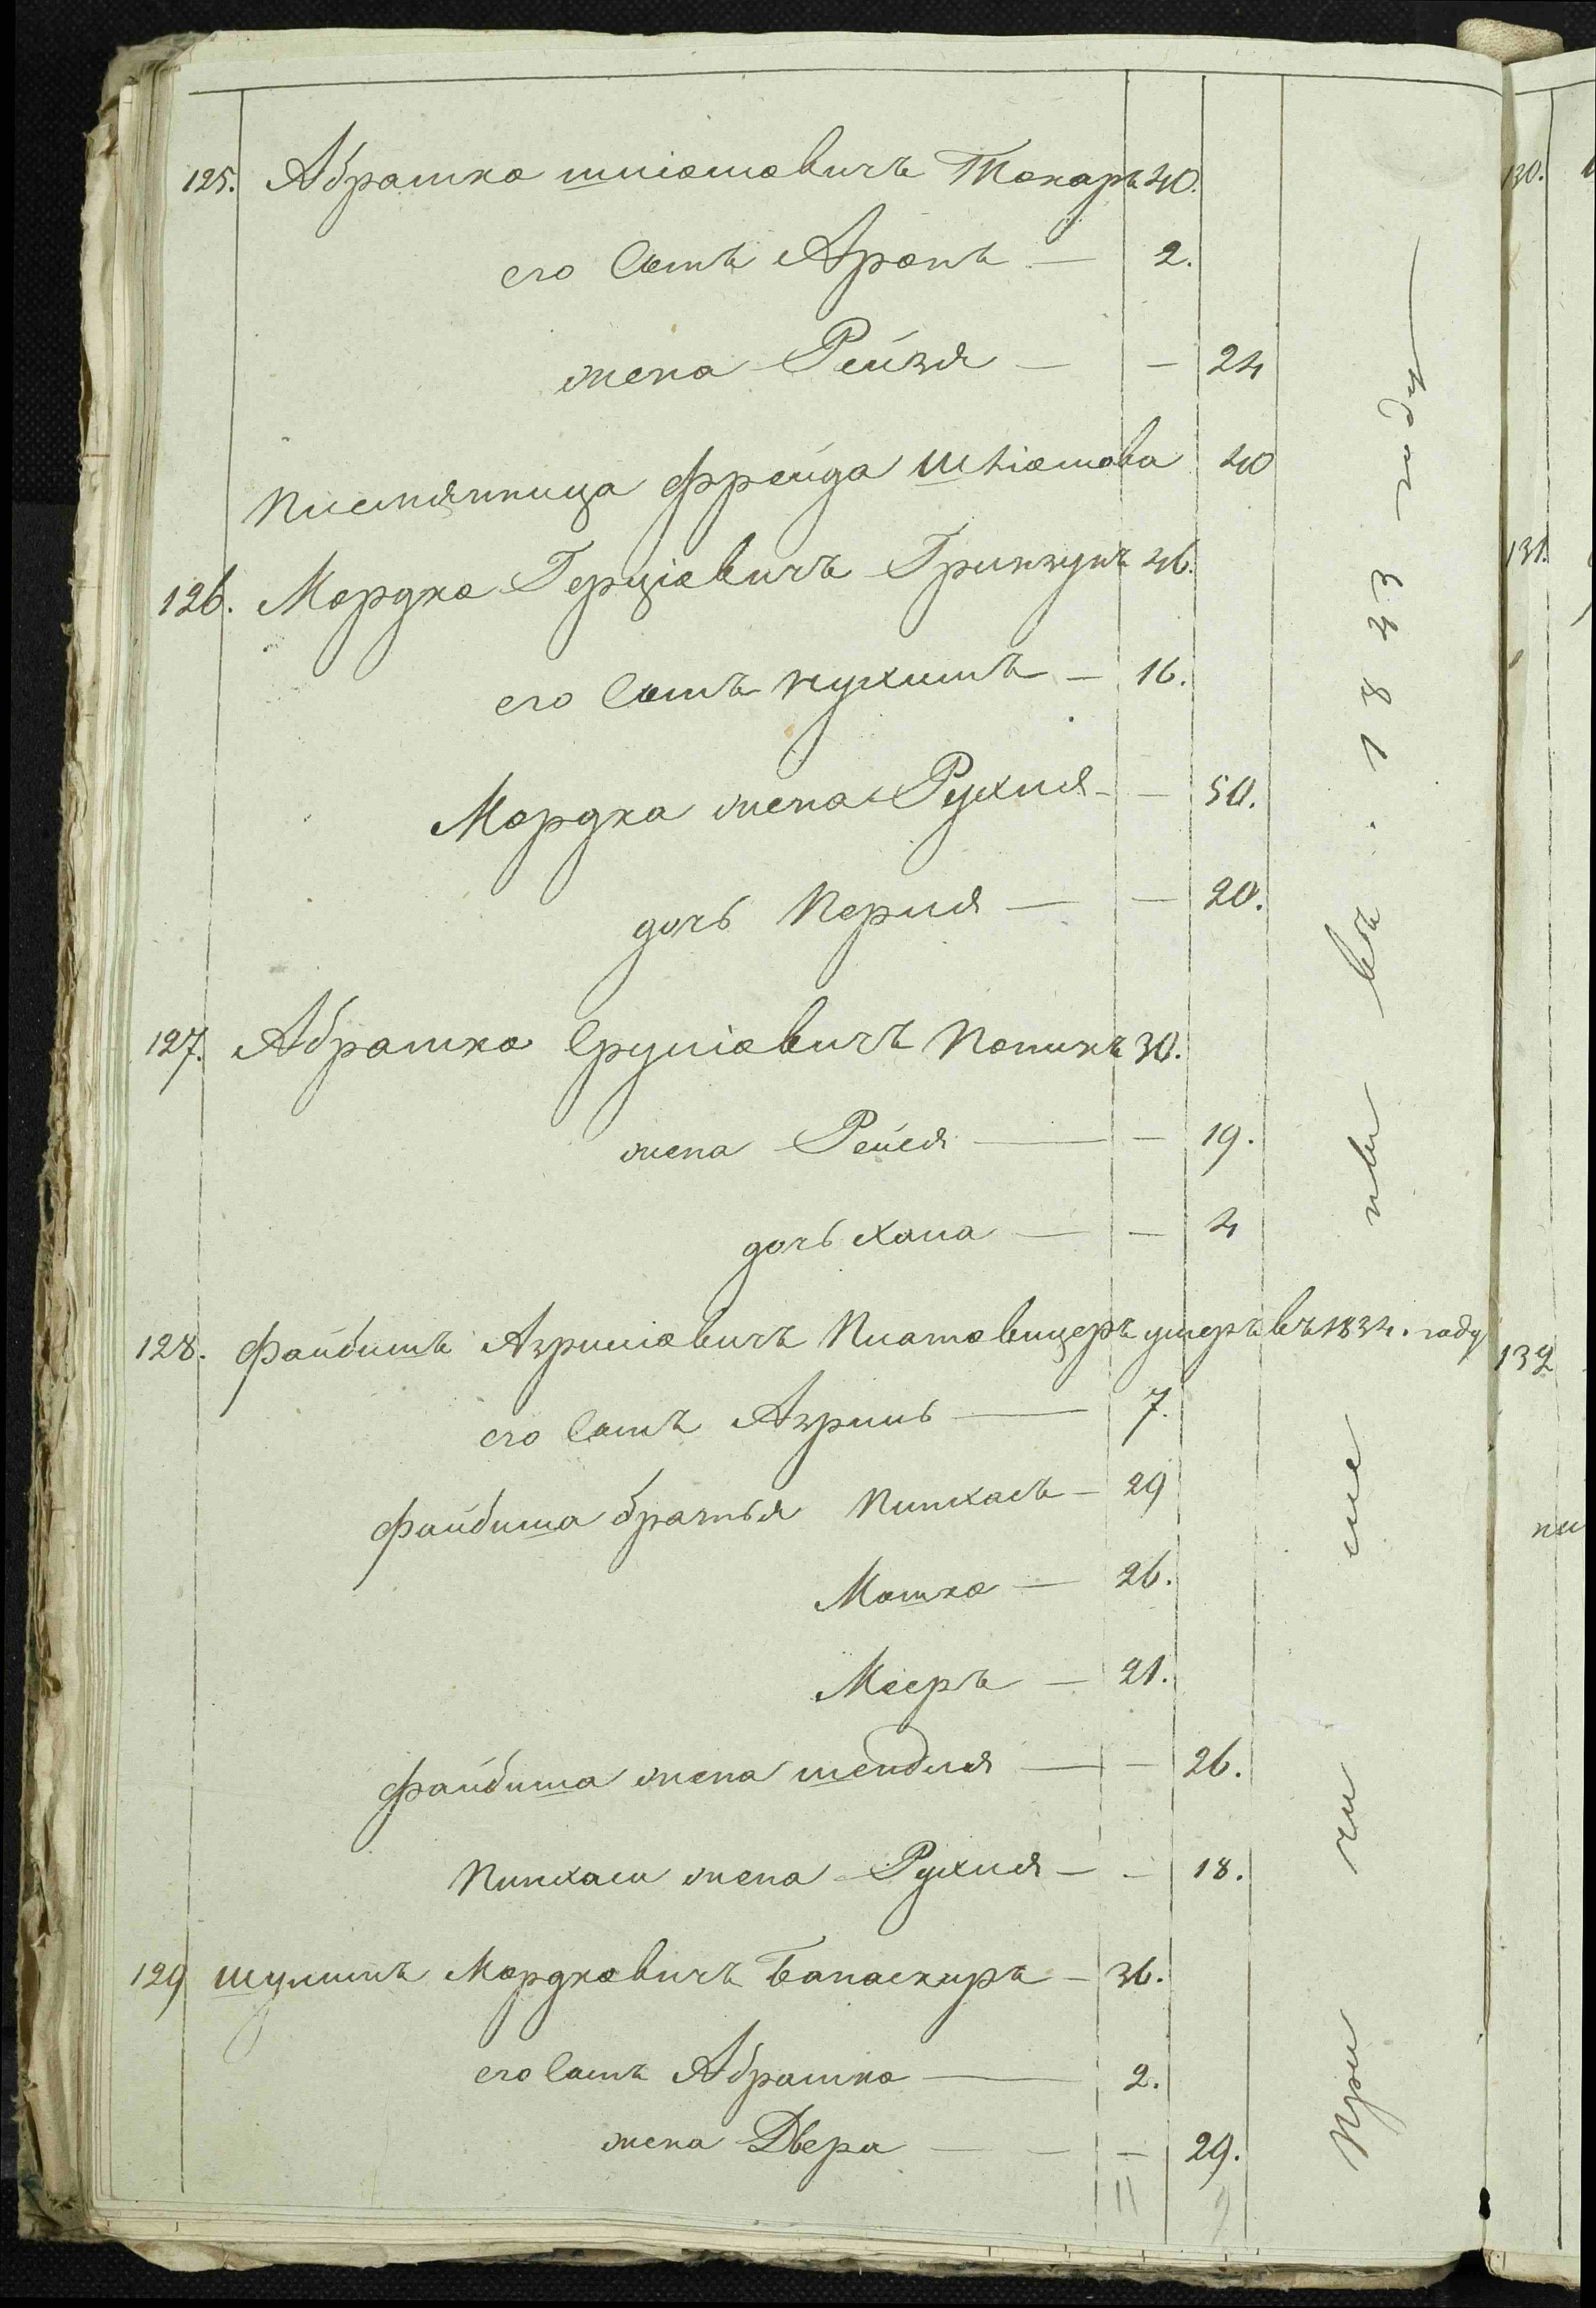 125. Абрамко Шліомовичъ Токаръ 40.
его Сынъ Аронъ — 2.
жена Рейзя — — 24
племянница Фрейда Шліомова 40
126. Мордко Герціовичъ Гринзунъ 46.
его Сынъ Нухимъ — 16.
Мордка жена Рухля — — 50.
дочь Перля — — 20.
127. Абрамко Сруліовичъ Попикъ 30.
жена Рейся — — 19.
дочь Хана — — 4
128. Файбишъ Азриліовичъ Платовицеръ умеръ въ 1834. году
его Сынъ Азриль — 7.
Файбиша братья Пинхасъ — 29
Мошко — 26.
Мееръ — 21.
Файбиша жена Шендля — — 26.
Пинхаси жена Рухля — — 18.
129 Шулимъ Мордковичъ Банаскиръ — 36.
его Сынъ Абрамко — 2.
жена Двера — — 29.
11 9
При чи сле ны въ . 1843 году —
130.
131.
132